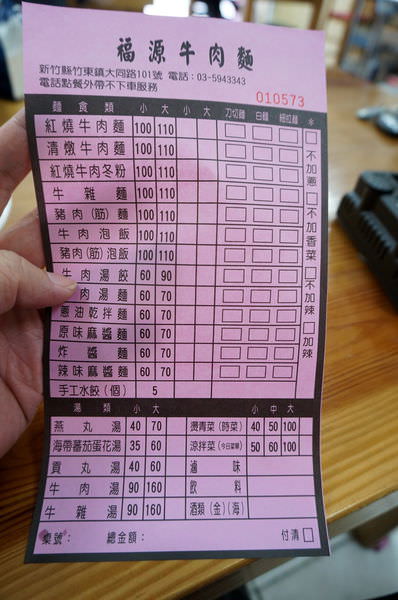 福源牛肉麵
新竹縣竹東鎮大同路101號 電話：03-5943343
電話點餐外帶不下車服務
010573
麵食類 小 大 小 大 刀切麵 白麵 細拉麵 *
紅燒牛肉麵 100 110
清燉牛肉麵 100 110
紅燒牛肉冬粉 100 110
牛雜麵 100 110
豬肉(筋)麵 100 110
牛肉泡飯 100 110
豬肉(筋)泡飯 100 110
牛肉湯餃 60 90
肉湯麵 60 70
蔥油乾拌麵 60 70
原味麻醬麵 60 70
炸醬麵 60 70
辣味麻醬麵 60 70
手工水餃(個) 5
不加蔥
不加香菜
不加辣
加辣
湯類 小 大 小 中 大
燕丸湯 40 70 燙青菜(時菜) 40 50 100
海帶蕃茄蛋花湯 35 60 涼拌菜(今日菜單) 50 60 100
貢丸湯 40 60 滷味
牛肉湯 90 160 飲料
牛雜湯 90 160 酒類(金)(海)
桌號： 總金額： 付清